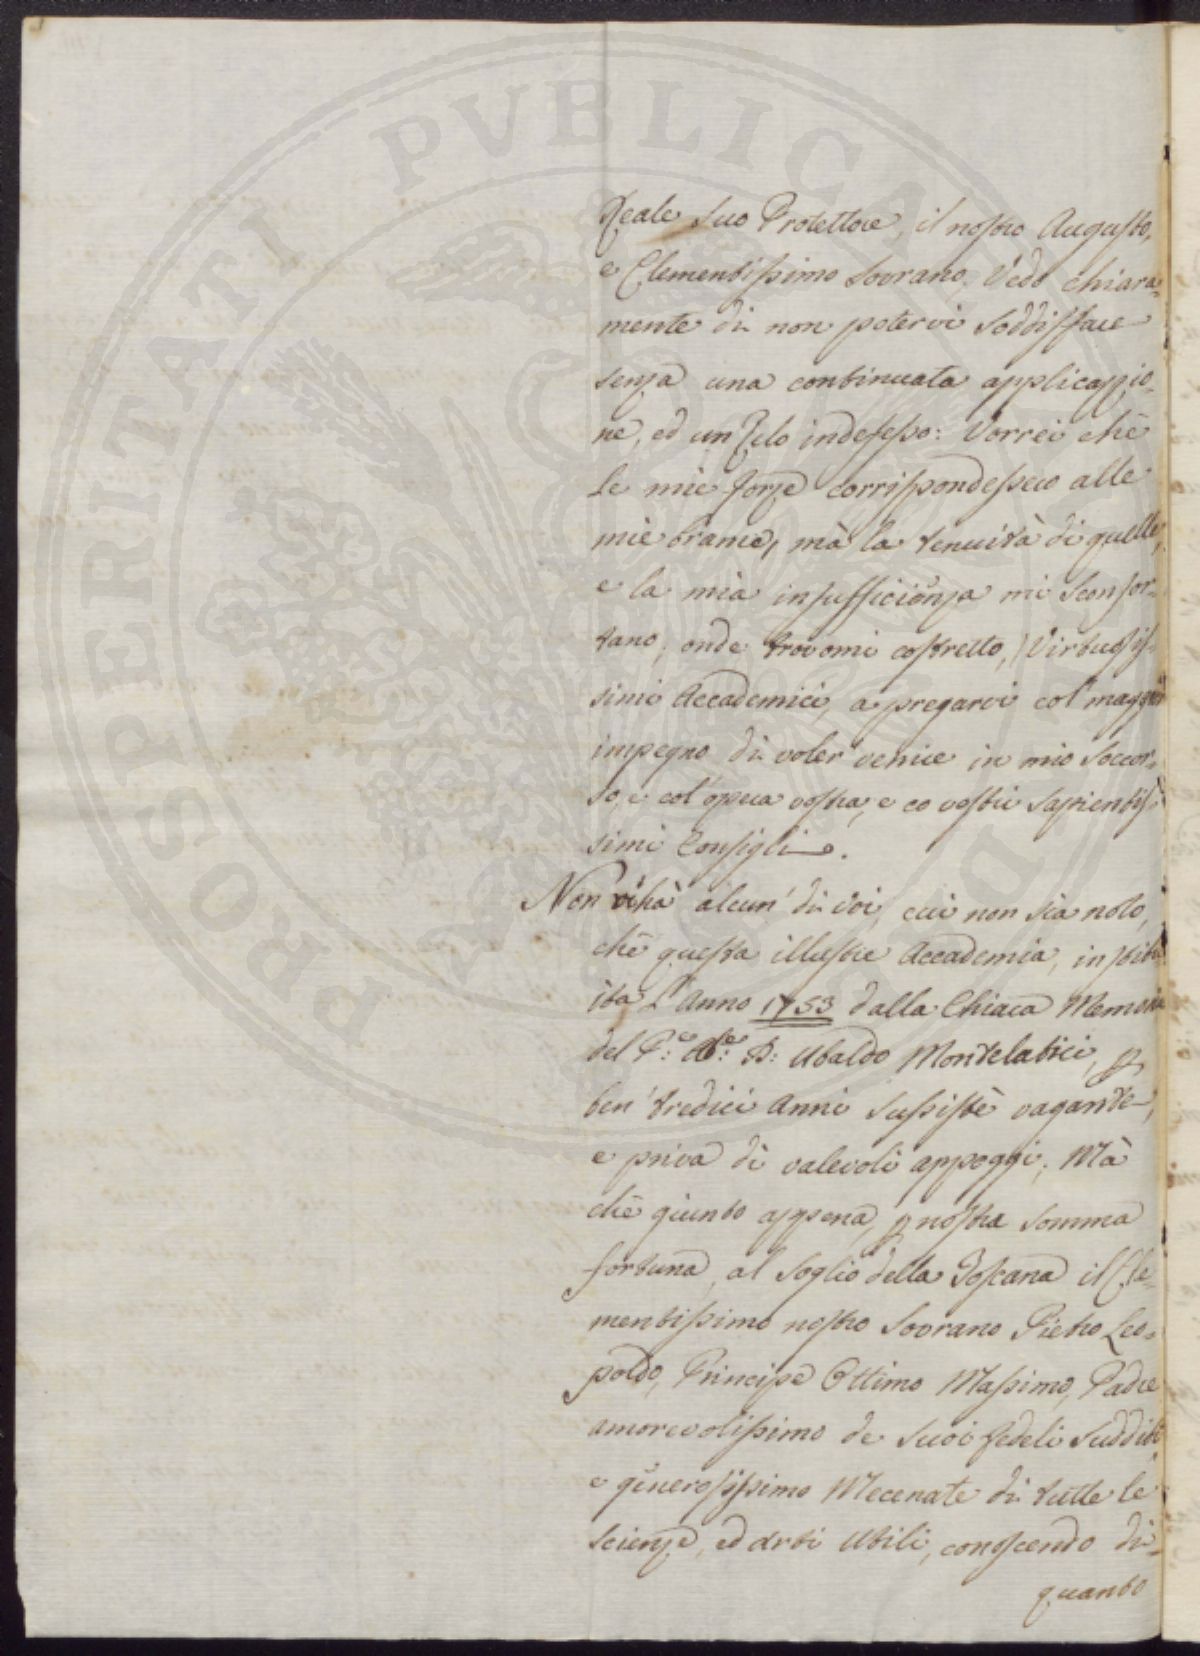 PROSPERITATI PVBLICAE
Reale suo Protettore, il nostro Augusto,
e Clementissimo Sovrano, Vedo chiara-
mente di non potervi soddisfare
senza una continuata applicazzio-
ne, ed un Zelo indefesso: Vorrei chè
le mie forze corrispondessero alle
mie brame, mà la tenuità di quelle,
e la mia insufficienza mi sconfor-
tano, onde trovomi costretto, Virtuosis-
simi Accademici, a pregarvi col' maggior
impegno di voler' venire in mio soccor-
so, e col' opera vostra, e co vostri sapientis-
simi Consigli.
Non vi hà alcun' di voi, cui non sia noto,
chè questa illustre Accademia, institu-
ita L'Anno 1753 dalla Chiara Memoria
del P.e Ab.e D: Ubaldo Montelatici, p
ben' tredici Anni sussistè vagante,
e priva di valevoli appoggi; Mà
chè giunto appena, p nostra somma
fortuna, al Soglio della Toscana il Cle-
mentissimo nostro Sovrano Pietro Leo-
poldo, Principe Ottimo Massimo, Padre
amorevolissimo de suoi fedeli Sudditi
e generosissimo Mecenate di tutte le
scienze, ed Arti Utili, conoscendo di-
quanto